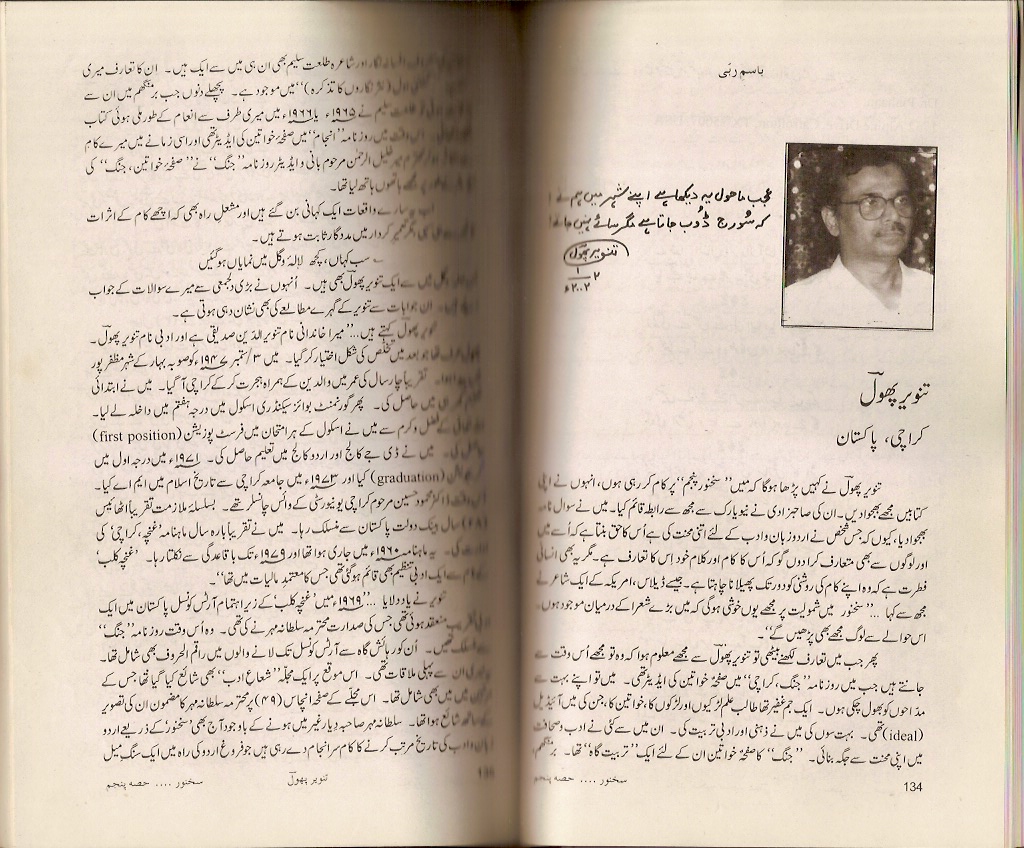 باسم ربّی
عجب ماحول یہ دیکھا ہے اپنے شہر میں ہم نے
کہ سُورج ڈُوب جاتا ہے مگر سائے نہیں جاتے
تنویر پھول
۱
۲
۲۰۰۲ء
تنویر پھولؔ
کراچی، پاکستان
تنویر پھولؔ نے کہیں پڑھا ہوگا کہ میں ’’سخنور پنجم‘‘ پر کام کر رہی ہوں، انہوں نے اپنی
کتابیں مجھے بھجوا دیں۔ ان کی صاحبزادی نے نیویارک سے مجھ سے رابطہ قائم کیا۔ میں نے سوال نامہ
بھجوا دیا، کیوں کہ جس شخص نے اردو زبان و ادب کے لئے اتنی محنت کی ہے اُس کا حق بنتا ہے کہ اُسے میں
اور لوگوں سے بھی متعارف کرا دوں گو کہ اُس کا کام اور کلام خود اِس کا تعارف ہے۔ مگر یہ بھی انسانی
فطرت ہے کہ وہ اپنے کام کی روشنی کو دور تک پھیلانا چاہتا ہے۔ جیسے ڈیلاس، امریکہ کے ایک شاعر نے
مجھ سے کہا ...’’سخنور میں شمولیت پر مجھے یوں خوشی ہوگی کہ میں بڑے شعرا کے درمیان موجود ہوں۔
اس حوالے سے لوگ مجھے بھی پڑھیں گے‘‘۔
پھر جب میں تعارف لکھنے بیٹھی تو تنویر پھولؔ سے مجھے معلوم ہوا کہ وہ تو مجھے اُس وقت سے
جانتے ہیں جب میں روزنامہ ’’جنگ، کراچی‘‘ میں صفحۂ خواتین کی ایڈیٹر تھی۔ میں تو اپنے بہت سے
مدّاحوں کو بھول چکی ہوں۔ ایک جم غفیر تھا طالب علم لڑکیوں اور لڑکوں کا، خواتین کا، جن کی میں آئیڈیل
(ideal) تھی۔ بہت سوں کی میں نے ذہنی اور ادبی تربیت کی۔ ان میں سے کئی نے ادب و صحافت
میں اپنی محنت سے جگہ بنائی۔ ’’جنگ‘‘ کا صفحۂ خواتین ان کے لئے ایک ’’تربیت گاہ‘‘ تھا۔ برمنگھم،
134
سخنور .... حصہ پنجم
اور شاعرہ طلعت سلیم بھی ان ہی میں سے ایک ہیں۔ ان کا تعارف میری
(نثر نگاروں کا تذکرہ)‘‘ میں موجود ہے۔ پچھلے دنوں جب برمنگھم میں ان سے
طلعت سلیم نے ۱۹۶۵ء یا ۱۹۶۶ء میں میری طرف سے انعام کے طور ملی ہوئی کتاب
اس وقت میں روزنامہ ’’انجام‘‘ میں صفحۂ خواتین کی ایڈیٹر تھی اور اسی زمانے میں میرے کام
میر خلیل الرحمٰن مرحوم بانی و ایڈیٹر روزنامہ ’’جنگ‘‘ نے ’’صفحۂ خواتین، جنگ‘‘ کی
مجھے ہاتھوں ہاتھ لیا تھا۔
سارے واقعات ایک کہانی بن گئے ہیں اور مشعلِ راہ بھی کہ اچھے کام کے اثرات
تعمیرِ کردار میں مددگار ثابت ہوتے ہیں۔
سب کہاں، کچھ لالہ و گل میں نمایاں ہوگئیں
گل میں سے ایک تنویر پھولؔ بھی ہیں۔ اُنہوں نے بڑی دلجمعی سے میرے سوالات کے جواب
ان جوابات سے تنویر کے گہرے مطالعے کی بھی نشان دہی ہوتی ہے۔
تنویر پھولؔ کہتے ہیں...’’میرا خاندانی نام تنویر الدّین صدیقی ہے اور ادبی نام تنویر پھولؔ۔
تھا جو بعد میں تخلص کی شکل اختیار کر گیا۔ میں ۳/ستمبر ۱۹۴۷ء کو صوبہ بہار کے شہر مظفر پور
تقریباً چار سال کی عمر میں والدین کے ہمراہ ہجرت کر کے کراچی آ گیا۔ میں نے ابتدائی
میں حاصل کی۔ پھر گورنمنٹ بوائز سیکنڈری اسکول میں درجہ ہفتم میں داخلہ لے لیا۔
فضل و کرم سے میں نے اسکول کے ہر امتحان میں فرسٹ پوزیشن (first position)
میں نے ڈی جے کالج اور اردو کالج میں تعلیم حاصل کی۔ ۱۹۷۱ء میں درجہ اول میں
(graduation) کیا اور ۱۹۷۳ء میں جامعہ کراچی سے تاریخ اسلام میں ایم اے کیا۔
ڈاکٹر محمود حسین مرحوم کراچی یونیورسٹی کے وائس چانسلر تھے۔ بسلسلۂ ملازمت تقریباً اٹھائیس
(۲۸) سال بینک دولت پاکستان سے منسلک رہا۔ میں نے تقریباً بارہ سال ماہنامہ ’غنچہ، کراچی‘ کی
یہ ماہنامہ ۱۹۶۰ء میں جاری ہوا تھا اور ۱۹۷۹ء تک باقاعدگی سے نکلتا رہا۔ ’غنچہ کلب‘
سے ایک ادبی تنظیم بھی قائم ہوگئی تھی جس کا معتمد مالیات میں تھا‘‘۔
تنویر نے یاد دلایا ...’’۱۹۶۹ء میں ’غنچہ کلب‘ کے زیر اہتمام آرٹس کونسل پاکستان میں ایک
تقریب منعقد ہوئی تھی جس کی صدارت محترمہ سلطانہ مہر نے کی تھی۔ وہ اُس وقت روزنامہ ’’جنگ‘‘
منسلک تھیں۔ اُن کو رہائش گاہ سے آرٹس کونسل تک لانے والوں میں راقم الحروف بھی شامل تھا۔
ان سے پہلی ملاقات تھی۔ اس موقع پر ایک مجلّہ ’’شعاعِ ادب‘‘ بھی شائع کیا گیا تھا جس کے
میں میں بھی شامل تھا۔ اس مجلّے کے صفحہ انچاس (۴۹) پر محترمہ سلطانہ مہر کا مضمون ان کی تصویر
کے ساتھ شائع ہوا تھا۔ سلطانہ مہر صاحبہ دیارِ غیر میں ہونے کے باوجود آج بھی ’سخنور‘ کے ذریعے اردو
زبان و ادب کی تاریخ مرتب کرنے کا کام سرانجام دے رہی ہیں جو فروغِ اردو کی راہ میں ایک سنگِ میل
تنویر پھولؔ
سخنور .... حصہ پنجم